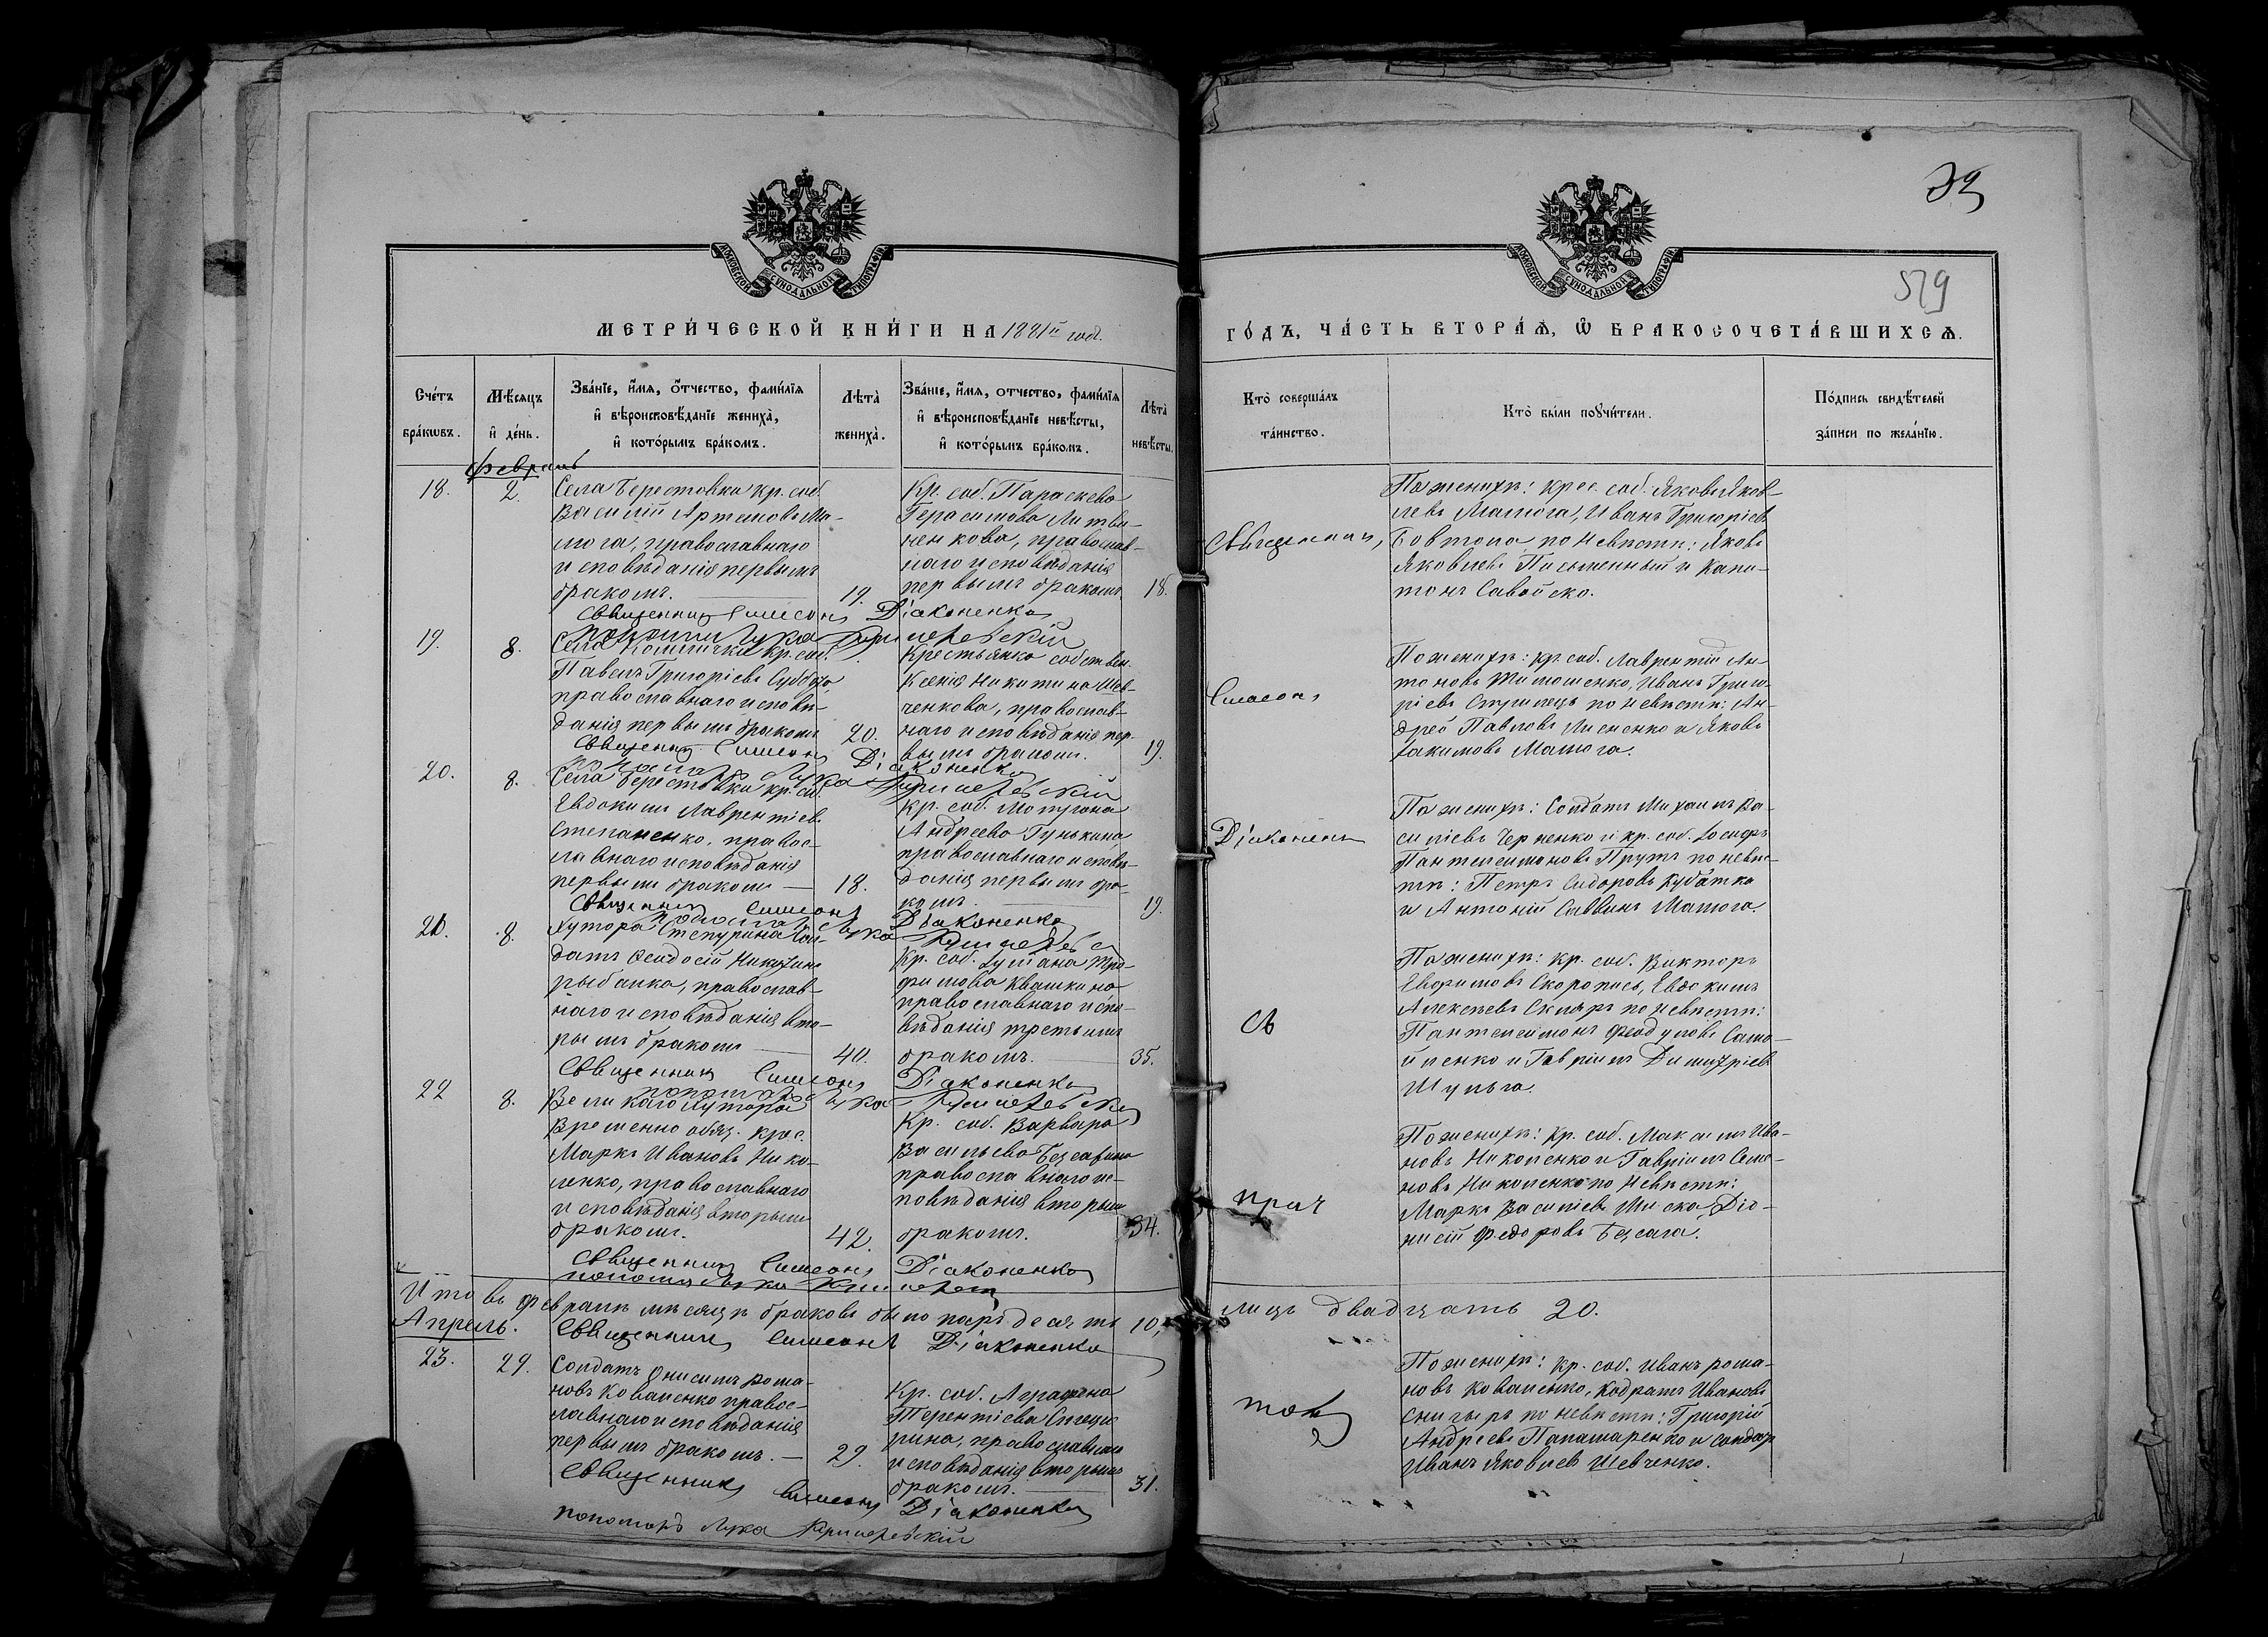 39
519
МОСКОВСКОЙ СѴНОДАЛЬНОЙ ТИПОГРАФІИ
МОСКОВСКОЙ СѴНОДАЛЬНОЙ ТИПОГРАФІИ
МЕТРИ́ЧЕСКОЙ КНИ́ГИ НА 1881й год.
ГО́ДЪ, ЧА́СТЬ ВТОРА́Ѧ, Ѽ БРАКОСОЧЕТА́ВШИХСѦ.
Сче́тъ бра́кѡвъ.
Мѣ́сяцъ и҆ де́нь.
Зва́нїе, и҆́мя, ѻ҆́тчество, фами́лїя и҆ вѣроисповѣ́данїе жениха̀, и҆ кото́рымъ бра́комъ.
Лѣта̀ жениха̀.
Зва́нїе, и҆́мя, отчество, фами́лїя и҆ вѣроисповѣ́данїе невѣ́сты, и҆ кото́рымъ бра́комъ.
Лѣта̀ невѣ́сты.
Кто̀ соверша́лъ та́инство.
Кто̀ бы́ли порꙋчи́тели.
По́дпись свидѣ́телей за́писи по жела́нїю.
Февраль
18.
2.
Села Берестовки кр. соб.
Василій Артемовъ Ма-
тюга, православнаго
исповѣданія первымъ
бракомъ.
19.
Кр. соб. Параскева
Герасимова Литви-
ненкова, православ-
наго исповѣданія
первымъ бракомъ.
18.
Священникъ
По женихѣ: крес. соб. Яковъ Яков-
левъ Матюга, Иванъ Григоріевъ
Бовтопа, по невѣстѣ: Яковъ
Яковлевъ Письменный и Капи-
тонъ Савойско.
Священникъ Симеонъ Діаконенко
пономарь Лука
19.
8.
Села кр. соб.
Павелъ Григоріевъ Суббота,
православнаго исповѣ-
данія первымъ бракомъ
20.
Крестьянка собствен.
Ксенія Никитина Шев-
ченкова, православ-
наго исповѣданія пер-
вымъ бракомъ.
19.
Симеонъ
По женихѣ: кр. соб. Лаврентій Ан-
тоновъ Тимошенко, Иванъ Григо-
ріевъ Стрилецъ по невѣстѣ: Ан-
дрей Павловъ Лисненко и Яковъ
Іакимовъ Матюга.
Священникъ Симеонъ Діаконенко
пономарь Лука
20.
8.
Села Берестовки кр. соб.
Евдокимъ Лаврентіевъ
Степаненко, правос-
лавнаго исповѣданія
первымъ бракомъ
18.
Кр. соб. Мотрона
Андреева Гунькина,
православнаго исповѣ-
данія первымъ бра-
комъ.
19.
Діаконенко
По женихѣ: Солдатъ Михаилъ Ва-
силіевъ Черненко и кр. соб. Іосифъ
Пантелеимоновъ Прутъ по невѣс-
тѣ: Петръ Сидоровъ Кубатко
и Антоній Саввинъ Матюга.
Священникъ Симеонъ Діаконенко
пономарь Лука
21.
8.
Хутора Степурина Сол-
датъ Феодосій Никитинъ
Рыбалка, православ-
наго исповѣданія вто-
рымъ бракомъ
40.
Кр. соб. Іуліана Тро-
фимова Квашкина
православнаго испо-
вѣданія третьимъ
бракомъ.
35.
съ
По женихѣ: кр. соб. Викторъ
Евфимовъ Скоропись, Евдокимъ
Алексѣевъ Скляръ по невѣстѣ:
Пантелеймонъ Феодуловъ Само-
йленко и Гавріилъ Димитріевъ
Шульга.
Священникъ Симеонъ Діаконенко
пономарь Лука
22
8.
Великаго Хутора
Временно обяз. крес.
Маркъ Ивановъ Нико-
ленко, православнаго
исповѣданія вторымъ
бракомъ.
42.
Кр. соб. Варвара
Васильева Безсалина
православнаго ис-
повѣданія вторымъ
бракомъ.
34.
прич
По женихѣ: кр. соб. Максимъ Ива-
новъ Николенко и Гавріилъ Семе-
новъ Николенко по невѣстѣ:
Маркъ Василіевъ Миска, Діо-
нисій Федоровъ Безсала.
Священникъ Симеонъ Діаконенко
пономарь Лука
Итого въ Февралѣ мѣсяцѣ браковъ было паръ десять 10, лицъ двадцать 20.
Апрель.
Священникъ Симеонъ Діаконенко
23.
29.
Солдатъ Онисимъ Рома-
новъ Коваленко правос-
лавнаго исповѣданія
первымъ бракомъ.
29.
Кр. соб. Аграфена
Терентіева
рина, православнаго
исповѣданія вторымъ
бракомъ.
31.
томъ
По женихѣ: кр. соб. Иванъ Рома-
новъ Коваленко, Кодратъ Ивановъ
Снигирь по невѣстѣ: Григорій
Андреевъ Паламаренко и солдатъ
Иванъ Яковлевъ Шевченко.
Священникъ Симеонъ Діаконенко
пономарь Лука